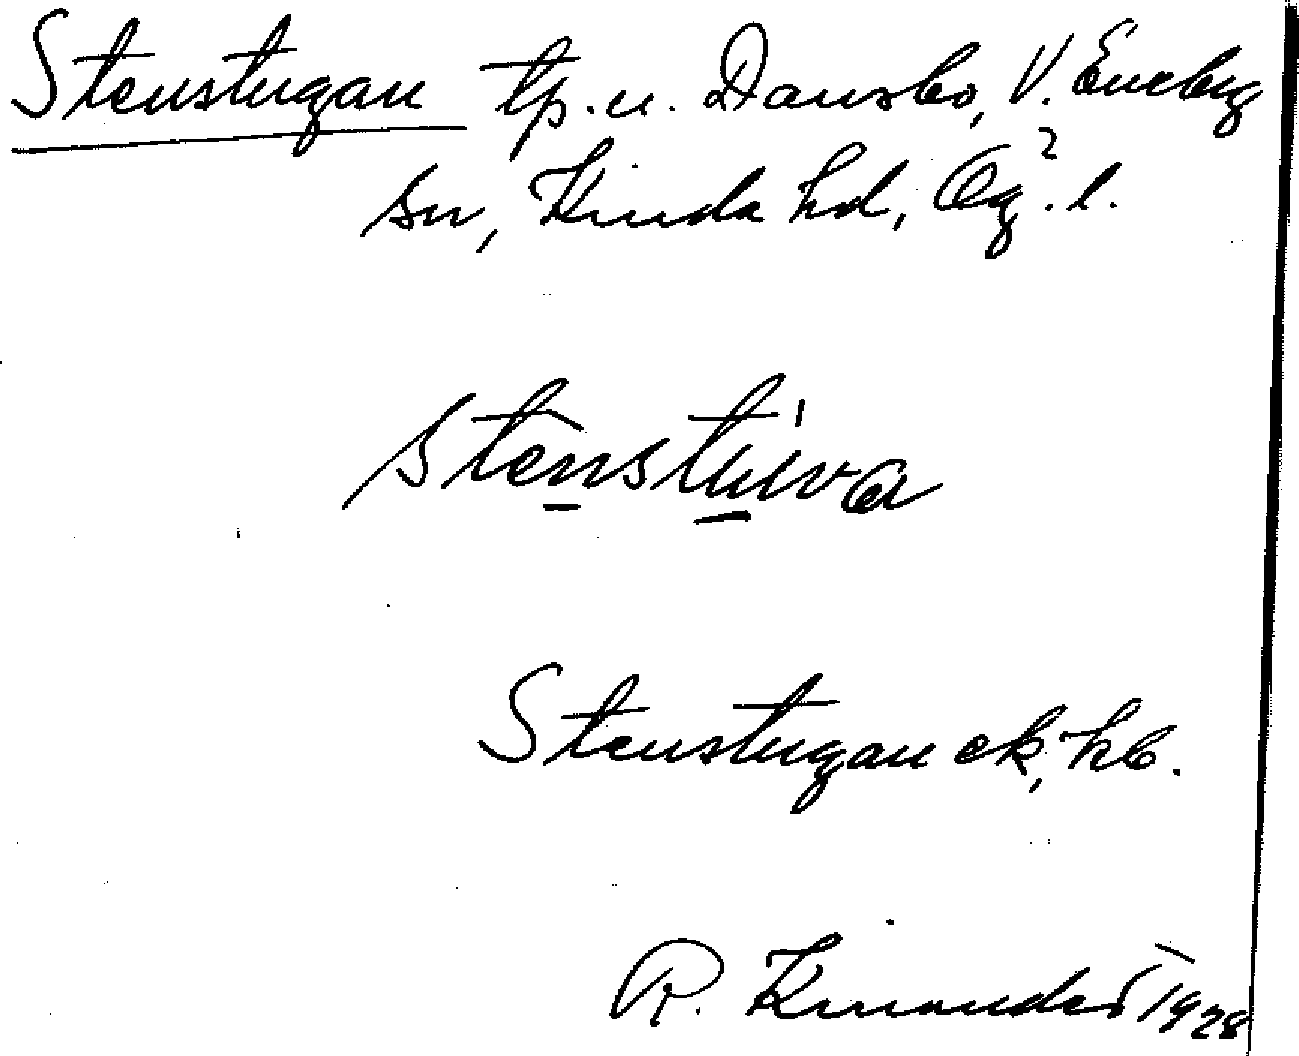 Stenstugan tp. u. Dansbo, V. Eneby
sn, Kinda hd, Ög. l.
stènstu̱va
Stenstugan ek, hb.
R. Kinander 1928